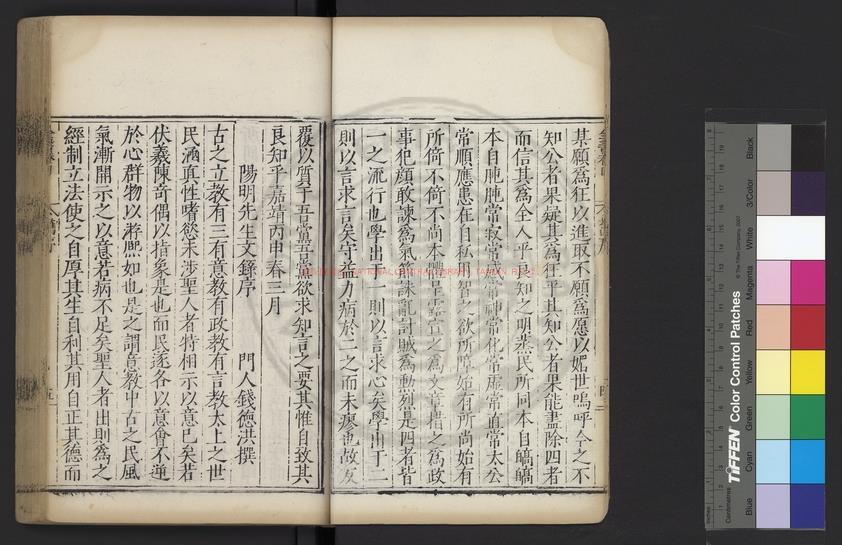 某願爲狂以進取不願爲愿以媚世嗚呼今之不
知公者果疑其爲狂乎其知公者果能盡除四者
而信其爲全人乎良知之明蒸民所同本自皜皜
本自肫肫常寂常感常神常化常虛常直常大公
常順應患在自私用智之欲所障始有所尚始有
所倚不倚不尚本體呈露宣之爲文章措之爲政
事犯顔敢諫爲氣節誅亂討賊爲勲烈是四者皆
一之流行也學出于一則以言求心矣學出于二
則以言求言矣守益力病於二之而未瘳也故反
覆以質于吾黨吾黨欲求知言之要其惟自致其
良知乎嘉靖丙申春三月
陽明先生文録序
門人錢德洪撰
古之立教有三有意教有政教有言教太上之世
民涵眞性嗜慾未涉聖人者特相示以意已矣若
伏羲陳奇偶以指象是也而民遂各以意會不逆
於心群物以游熈如也是之謂意教中古之民風
氣漸開示之以意若病不足矣聖人者出則爲之
經制立法使之自厚其生自利其用自正其德而
Inches
Centimetres
TIFFEN Color Control Patches
© The Tiffen Company, 2007
Blue
Cyan
Green
Yellow
Red
Magenta
White
3/Color
Black